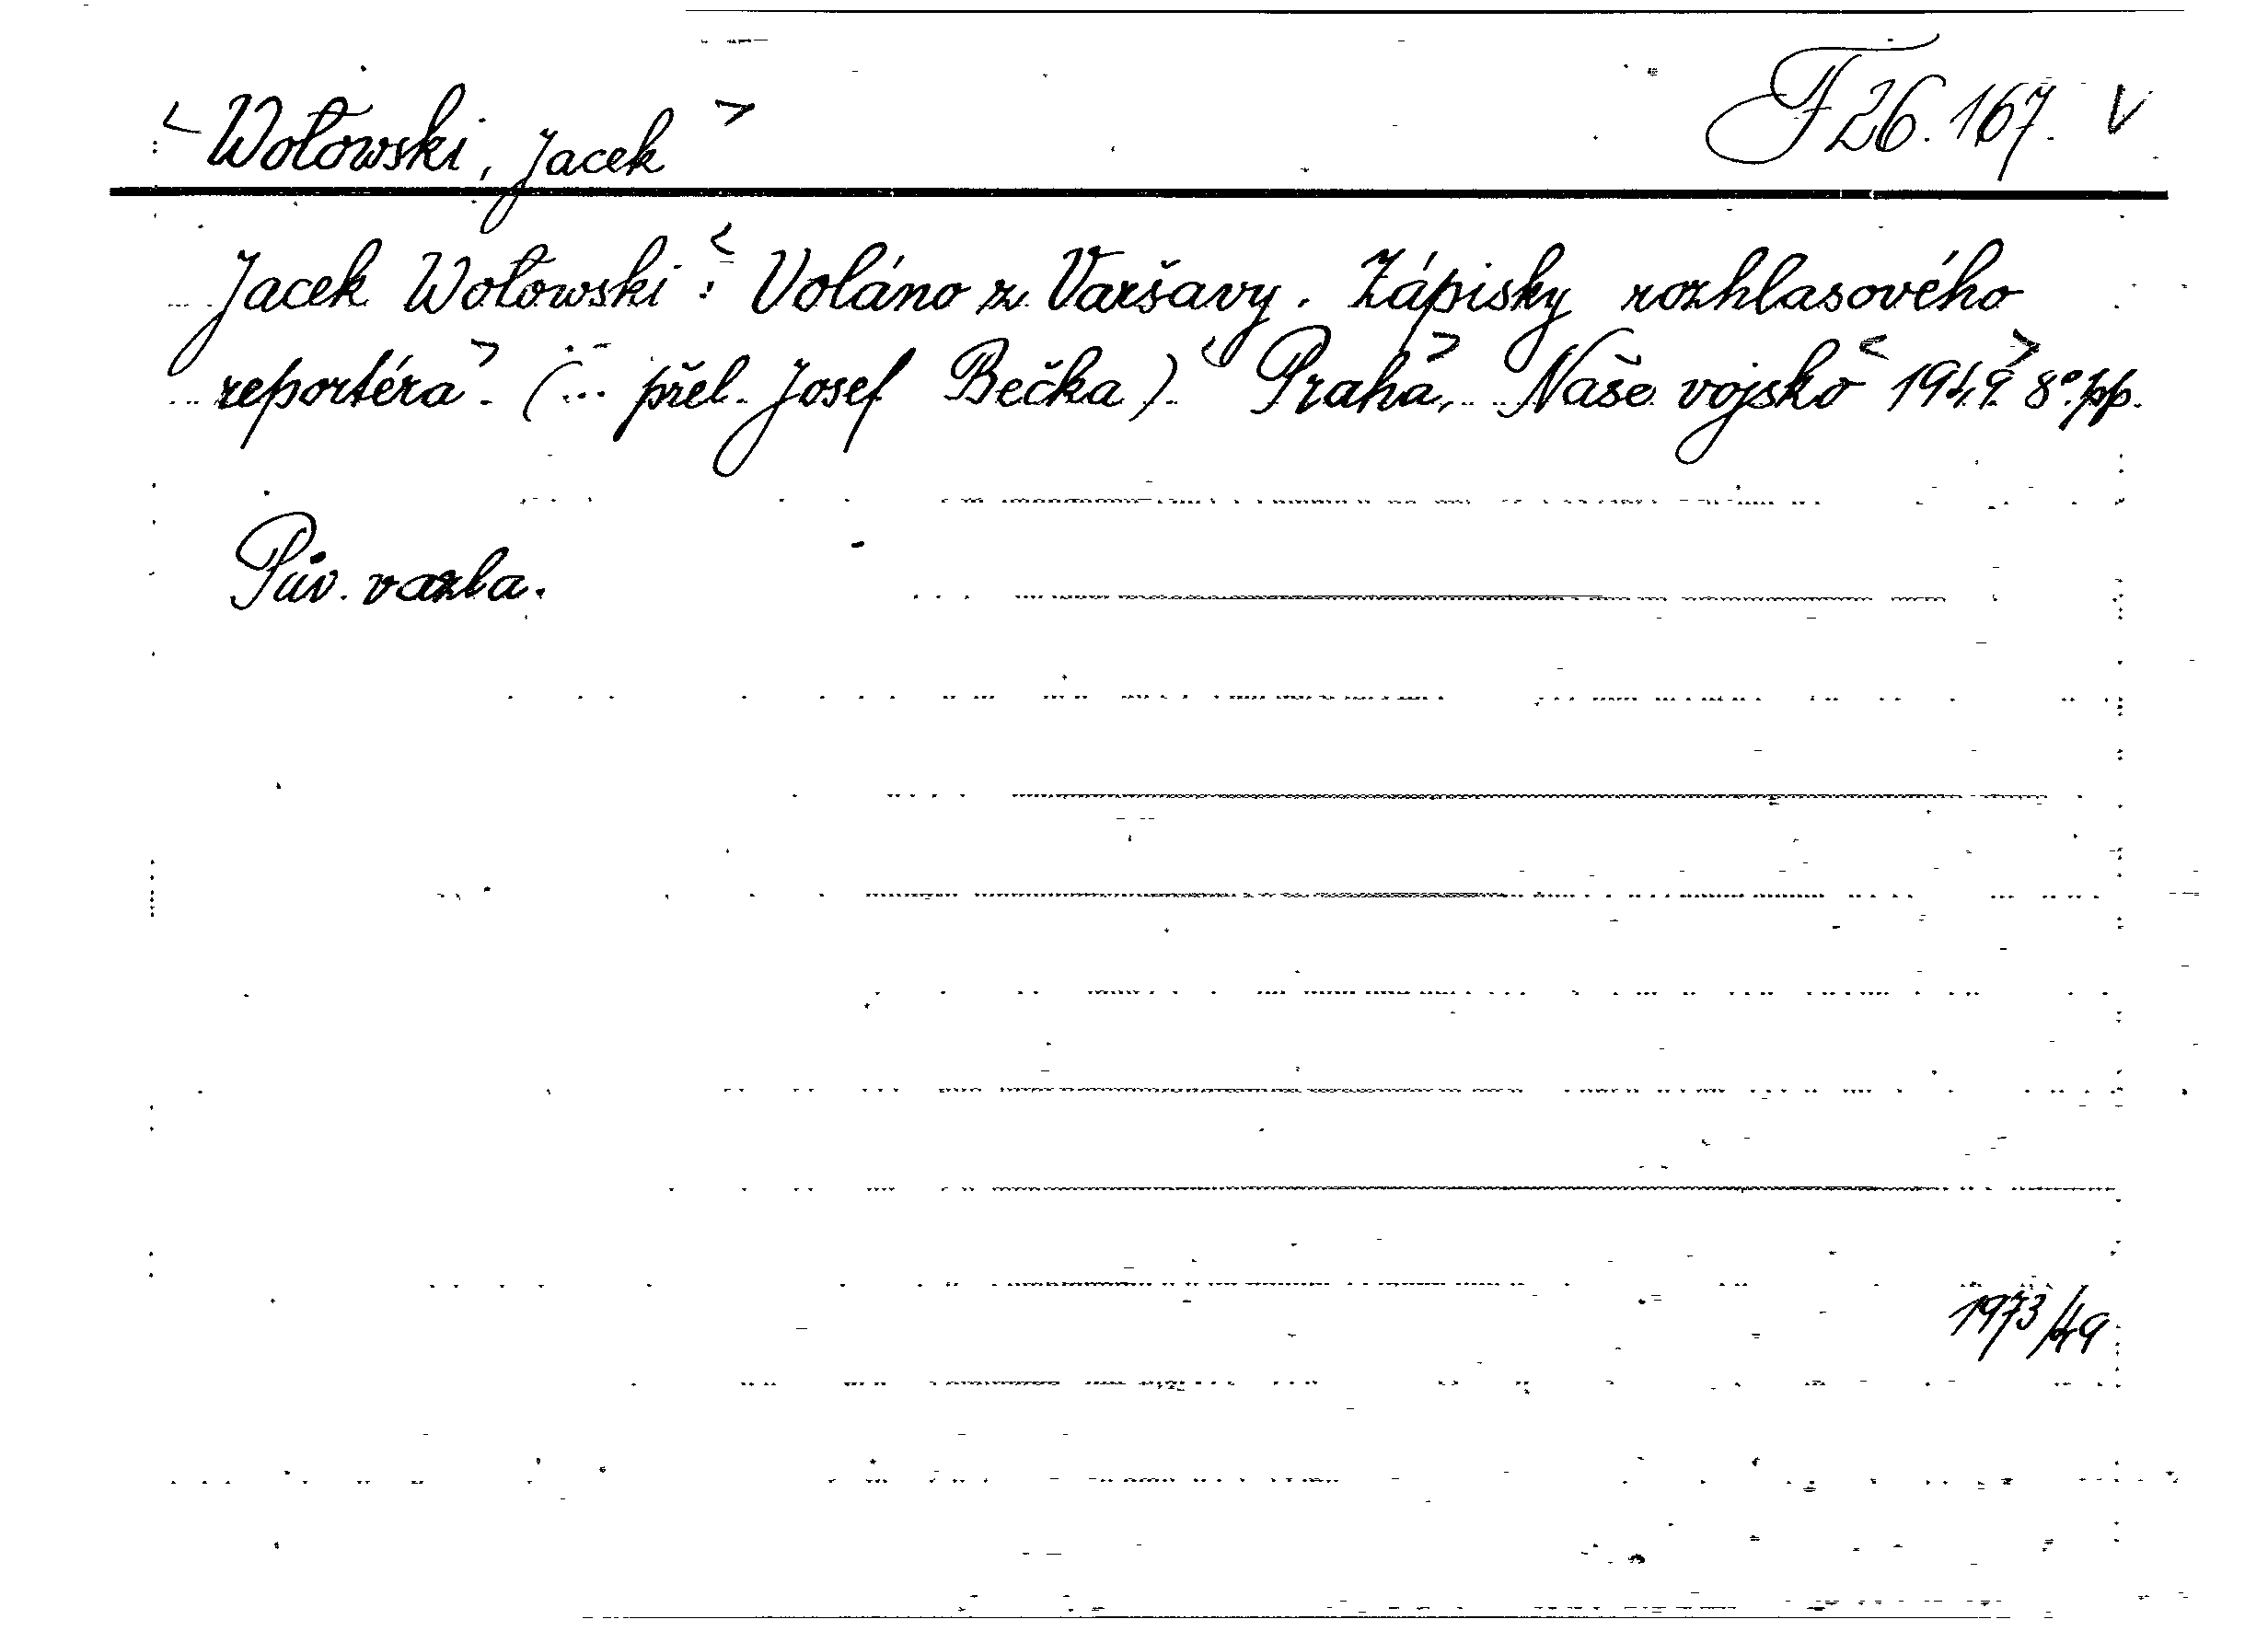 <Wołowski, Jacek> F 26.167. V
Jacek Wołowski: <Voláno z Varšavy. Zápisky rozhlasového
reportéra>. (... přel. Josef Bečka). <Praha>, Naše vojsko <1949>. 8°. pp.
Pův. vazba.
1973/49